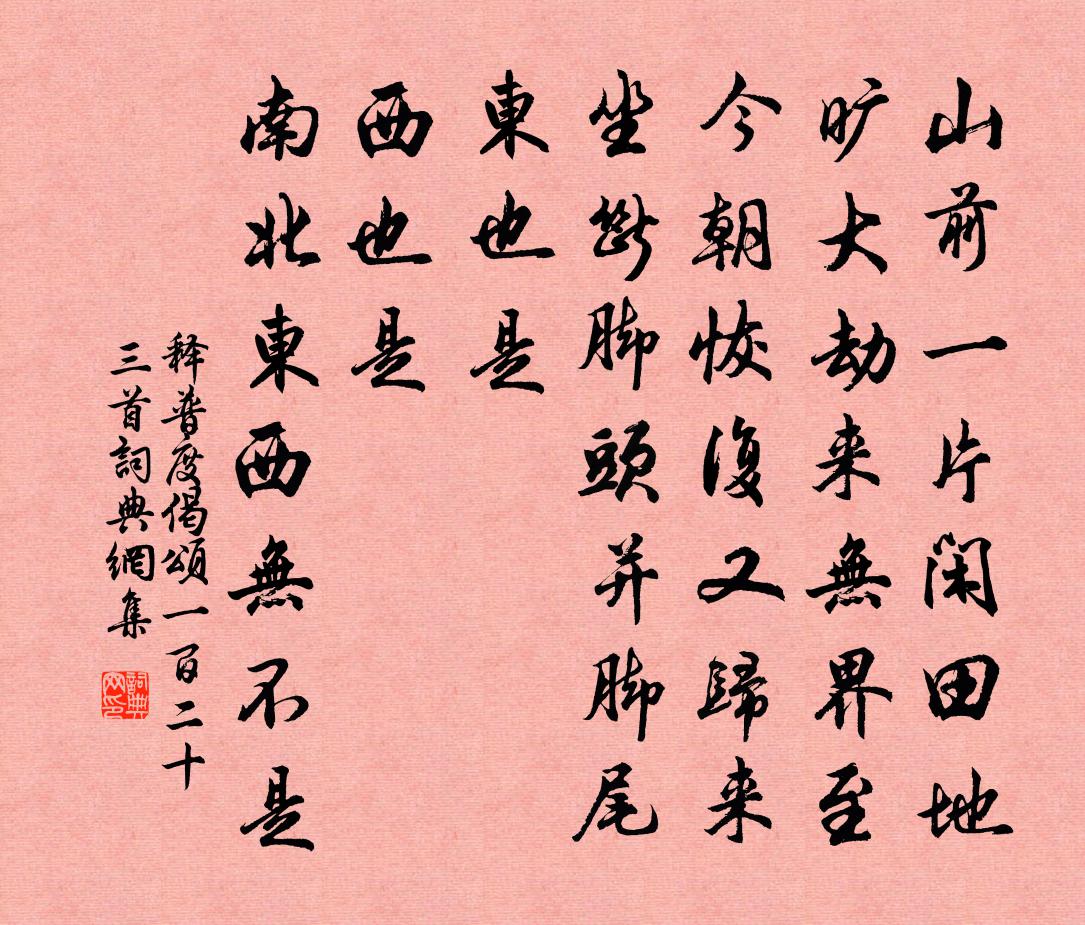 山前一片閑田地
旷大劫来無界至
今朝恢復又歸来
坐斷脚頭并脚尾
東也是
西也是
南北東西無不是
释普度偈頌一百二十
三首詞典網集
詞典
网印